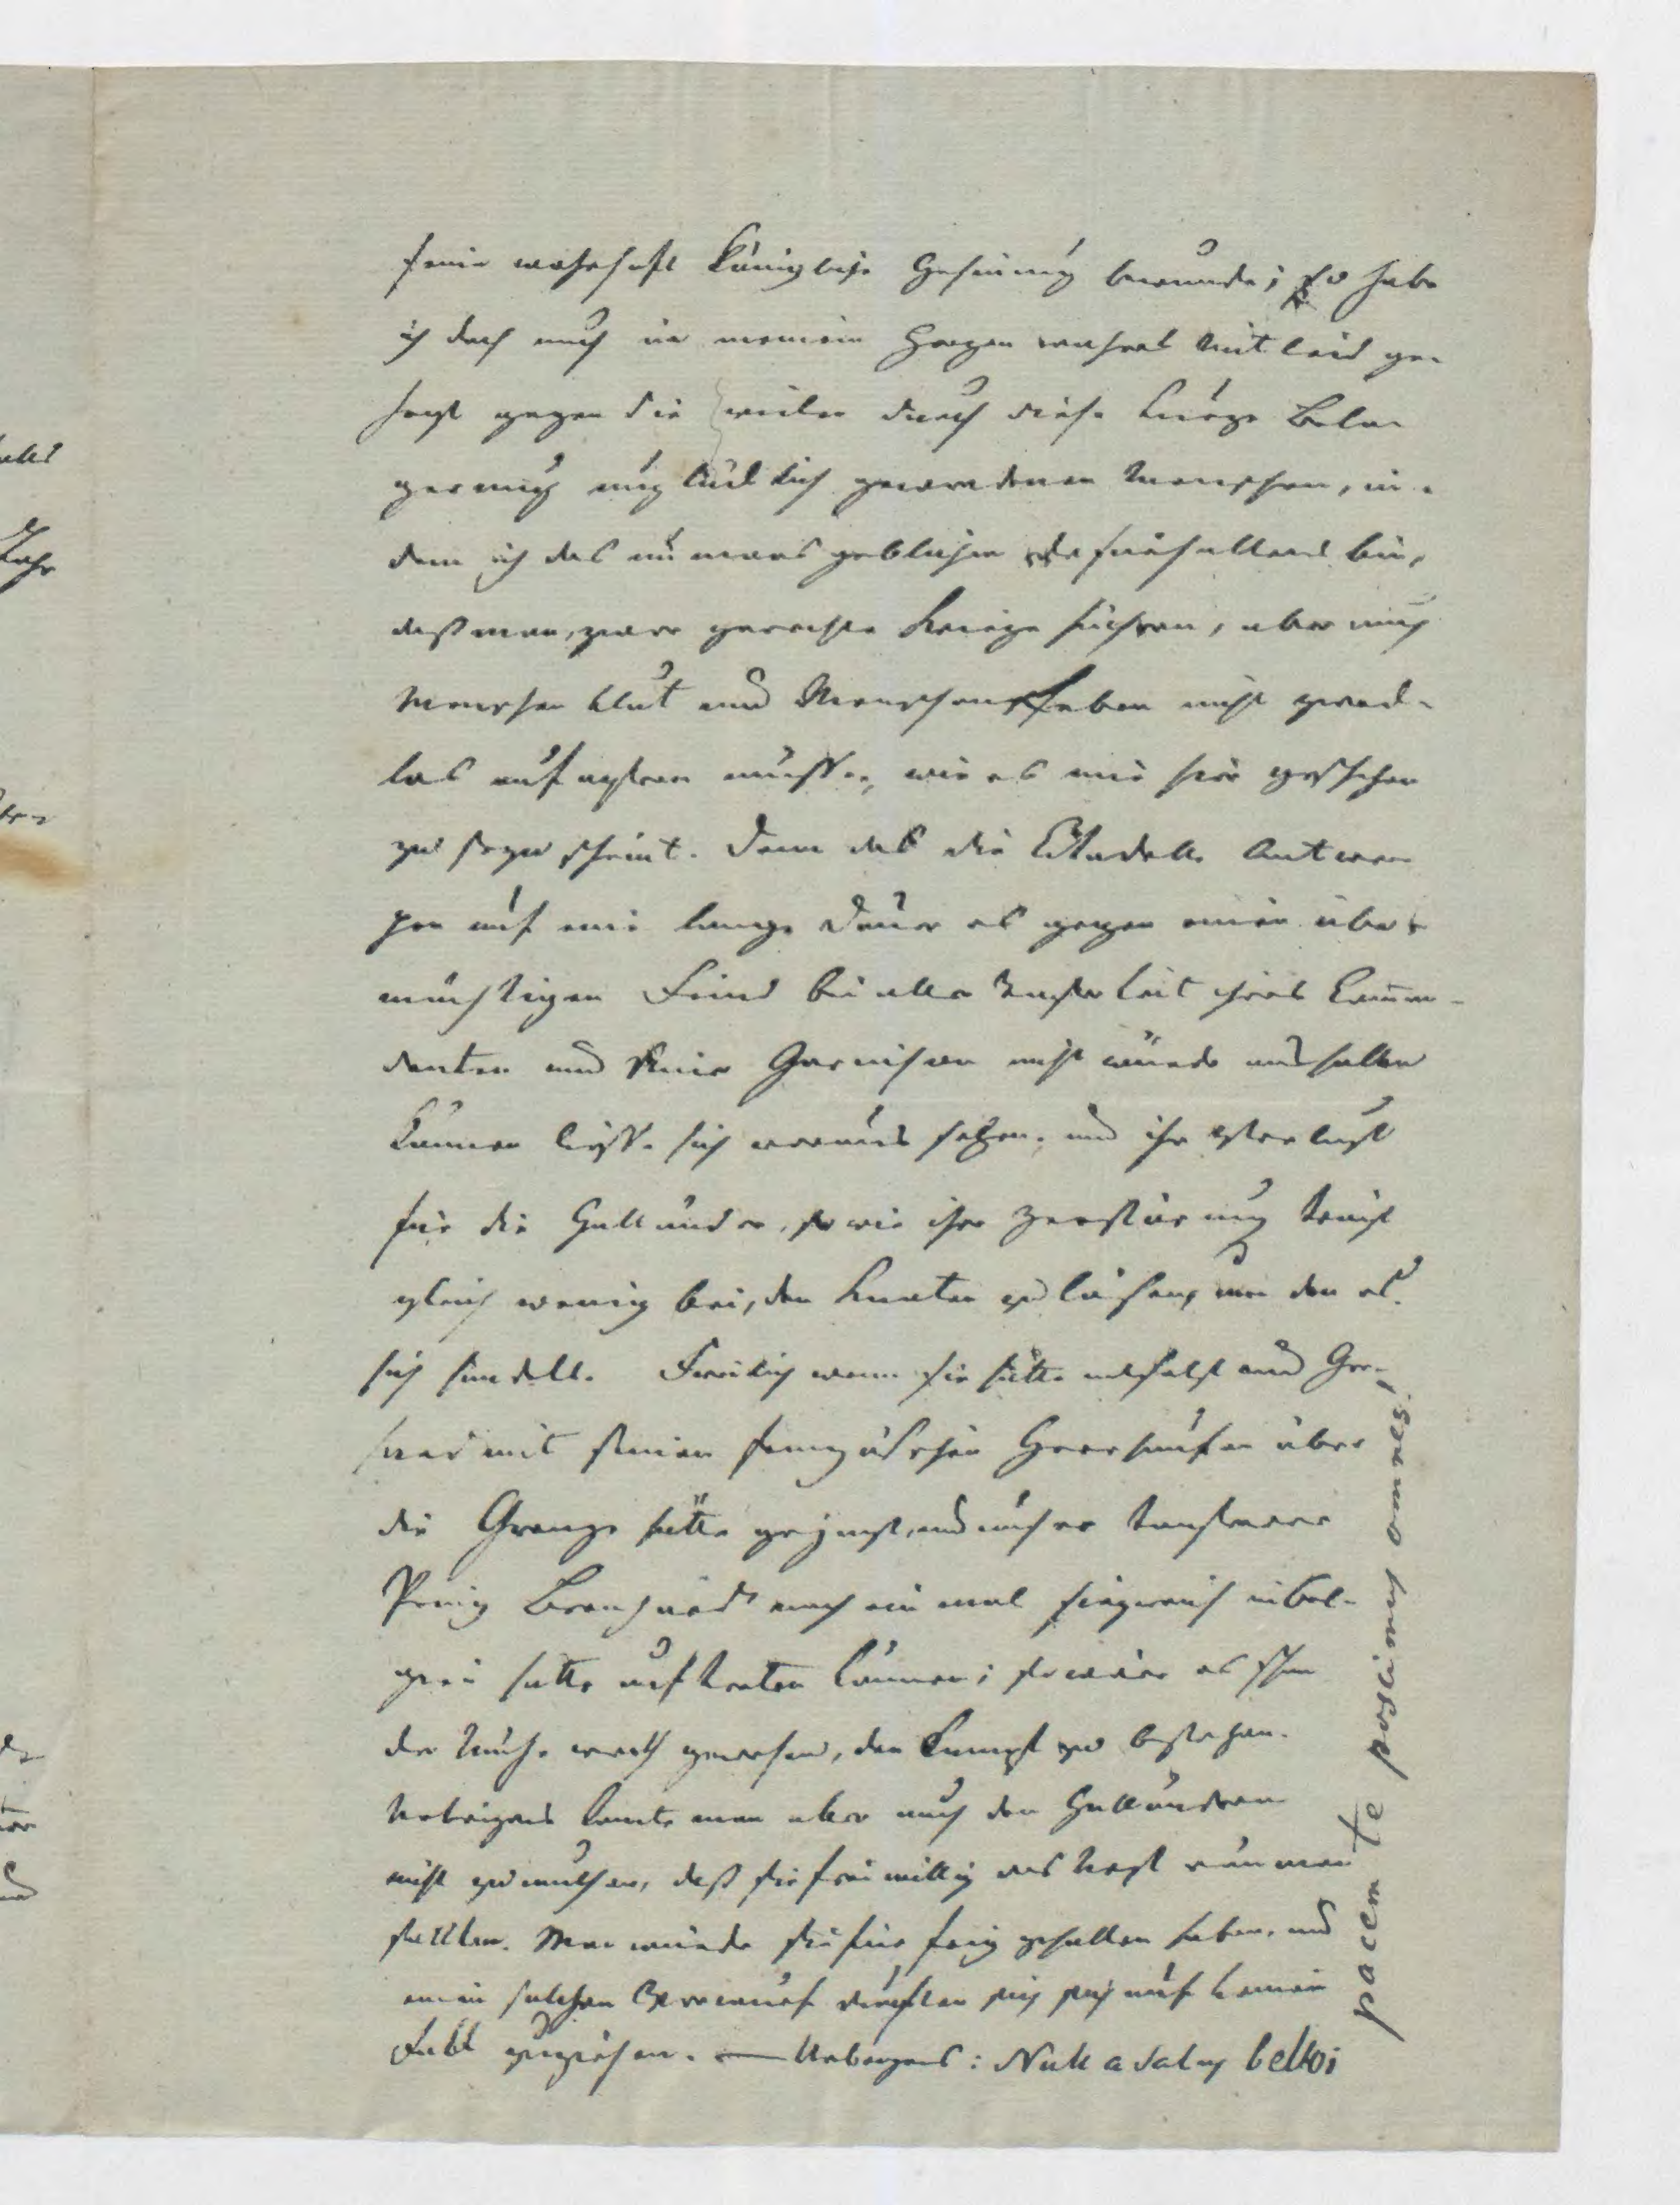 seine wahrhaft königliche Gesinnung bewundre; so habe
ich doch auch in meinem Herzen wahres Mitleid ge-
hegt gegen die vielen durch diese kurze Bela-
gerung unglücklich gewordenen Menschen, in-
dem ich des immens geblieben dafürhaltens bin,
daß man, zwar gerechte Kriege führen, aber auch
Menschen blut und Menschenleben nicht zweck-
los aufopfern müsse, wie es mir hier geschehen
zu seyn scheint. Denn daß die Citadelle Antwer-
pen auf eine lange Dauer es gegen einen über-
mächtigen Feind bei aller Tapferkeit ihres Comman-
danten und seiner Garnison nicht würde aushalten
können ließe sich voraus sehen, und ihr Verlust
für die Holländer, so wie ihre Zerstörung trägt
gleich wenig bei, den Knoten zu lösen, um den es
sich handelt. Freilich wenn sie hätte entsetzt und Ger-
hard mit seinen französischen Heerhaufen über
die Grenze hätte gejagt, und unser tapferer
Prinz Bernhard noch ein mal siegreich in Bel-
gien hätte auftreten können; so wäre es schon
der Mühe werth gewesen, den Kampf zu bestehen.
Uebrigens konnte man aber auch den Holländern
nicht zumuthen, daß sie freiwillig das Nest räumen
sollten. Man würde sie für feig gehalten haben, und
einen solchen Vorwurf durften sie sich auf keinen
Fall zuziehen. — Uebrigens: Nulla salus belloi
pacem te poscimus omnes!